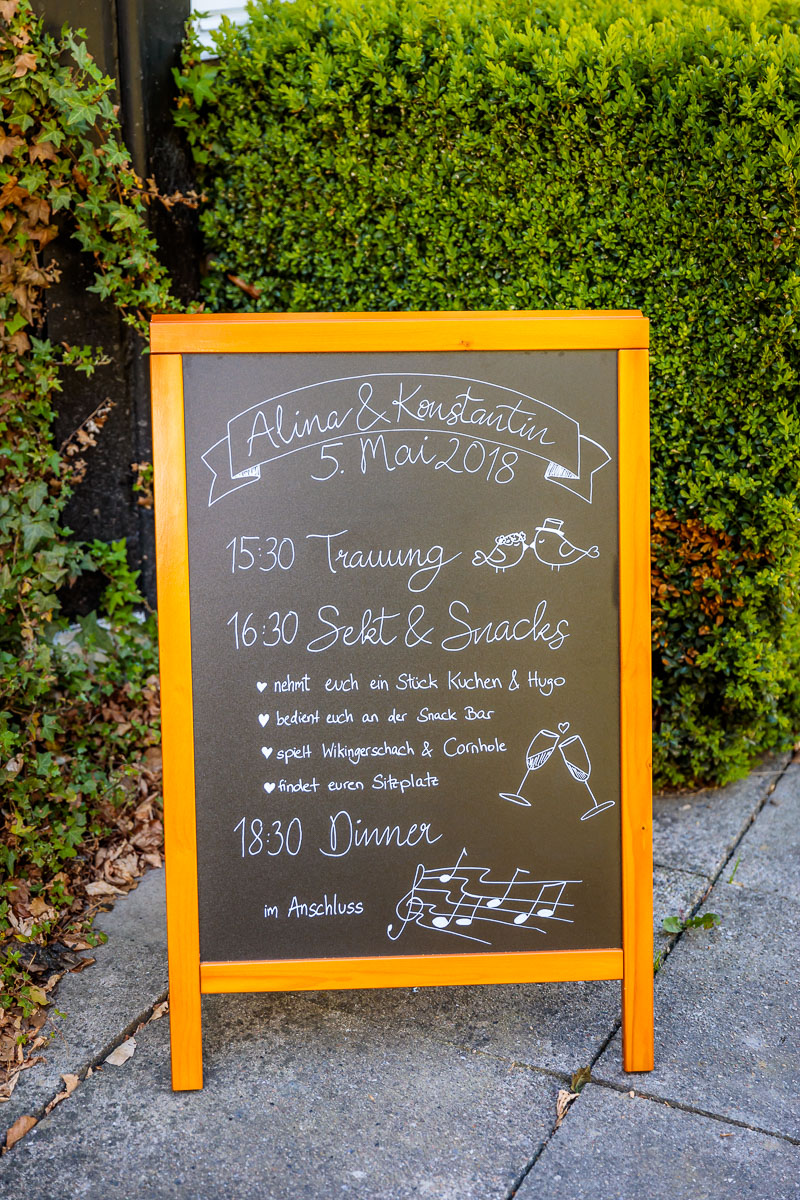 Alina & Konstantin
5. Mai 2018
15:30 Trauung
16:30 Sekt & Snacks
♥ nehmt euch ein Stück Kuchen & Hugo
♥ bedient euch an der Snack Bar
♥ spielt Wikingerschach & Cornhole
♥ findet euren Sitzplatz
18:30 Dinner
im Anschluss